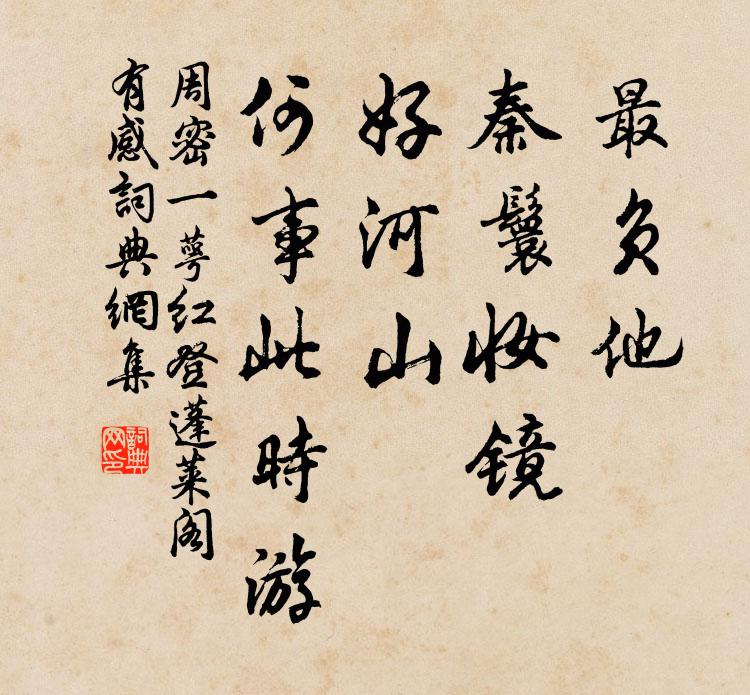 最负他
秦鬟妆镜
好河山
何事此時游
周密一萼红登蓬莱阁
有感詞典網集
詞典
网印